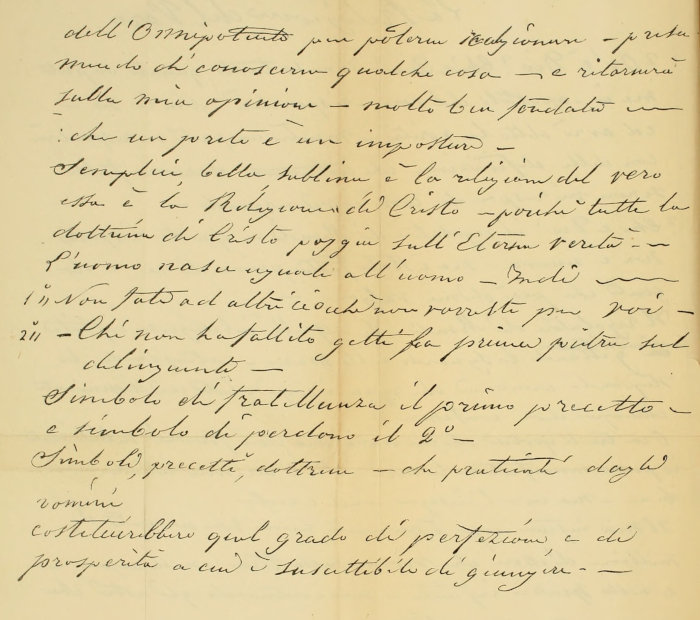 dell'Omnipotente per poterne ragionare — presu-
mendo di conoscerne qualche cosa — e ritornerò
sulla mia opinione — molto ben fondata —
: che un prete è un impostore —
Semplice, bella sublime è la religione del vero
essa è la Religione di Cristo — poiché tutta la
dottrina di Cristo poggia sull'Eterna verità. —
L'uomo nasce uguale all'uomo — Indi —
1º Non fate ad altri ciocché non vorreste per voi —
2º — Chi non ha fallito getti la prima pietra sul
delinquente —
Simbolo di fratellanza il primo precetto —
e simbolo di perdono il 2º —
Simboli, precetti, dottrine — che praticati dagli
uomini
costituirebbero quel grado di perfezione e di
prosperità a cui è suscettibile di giungere. —